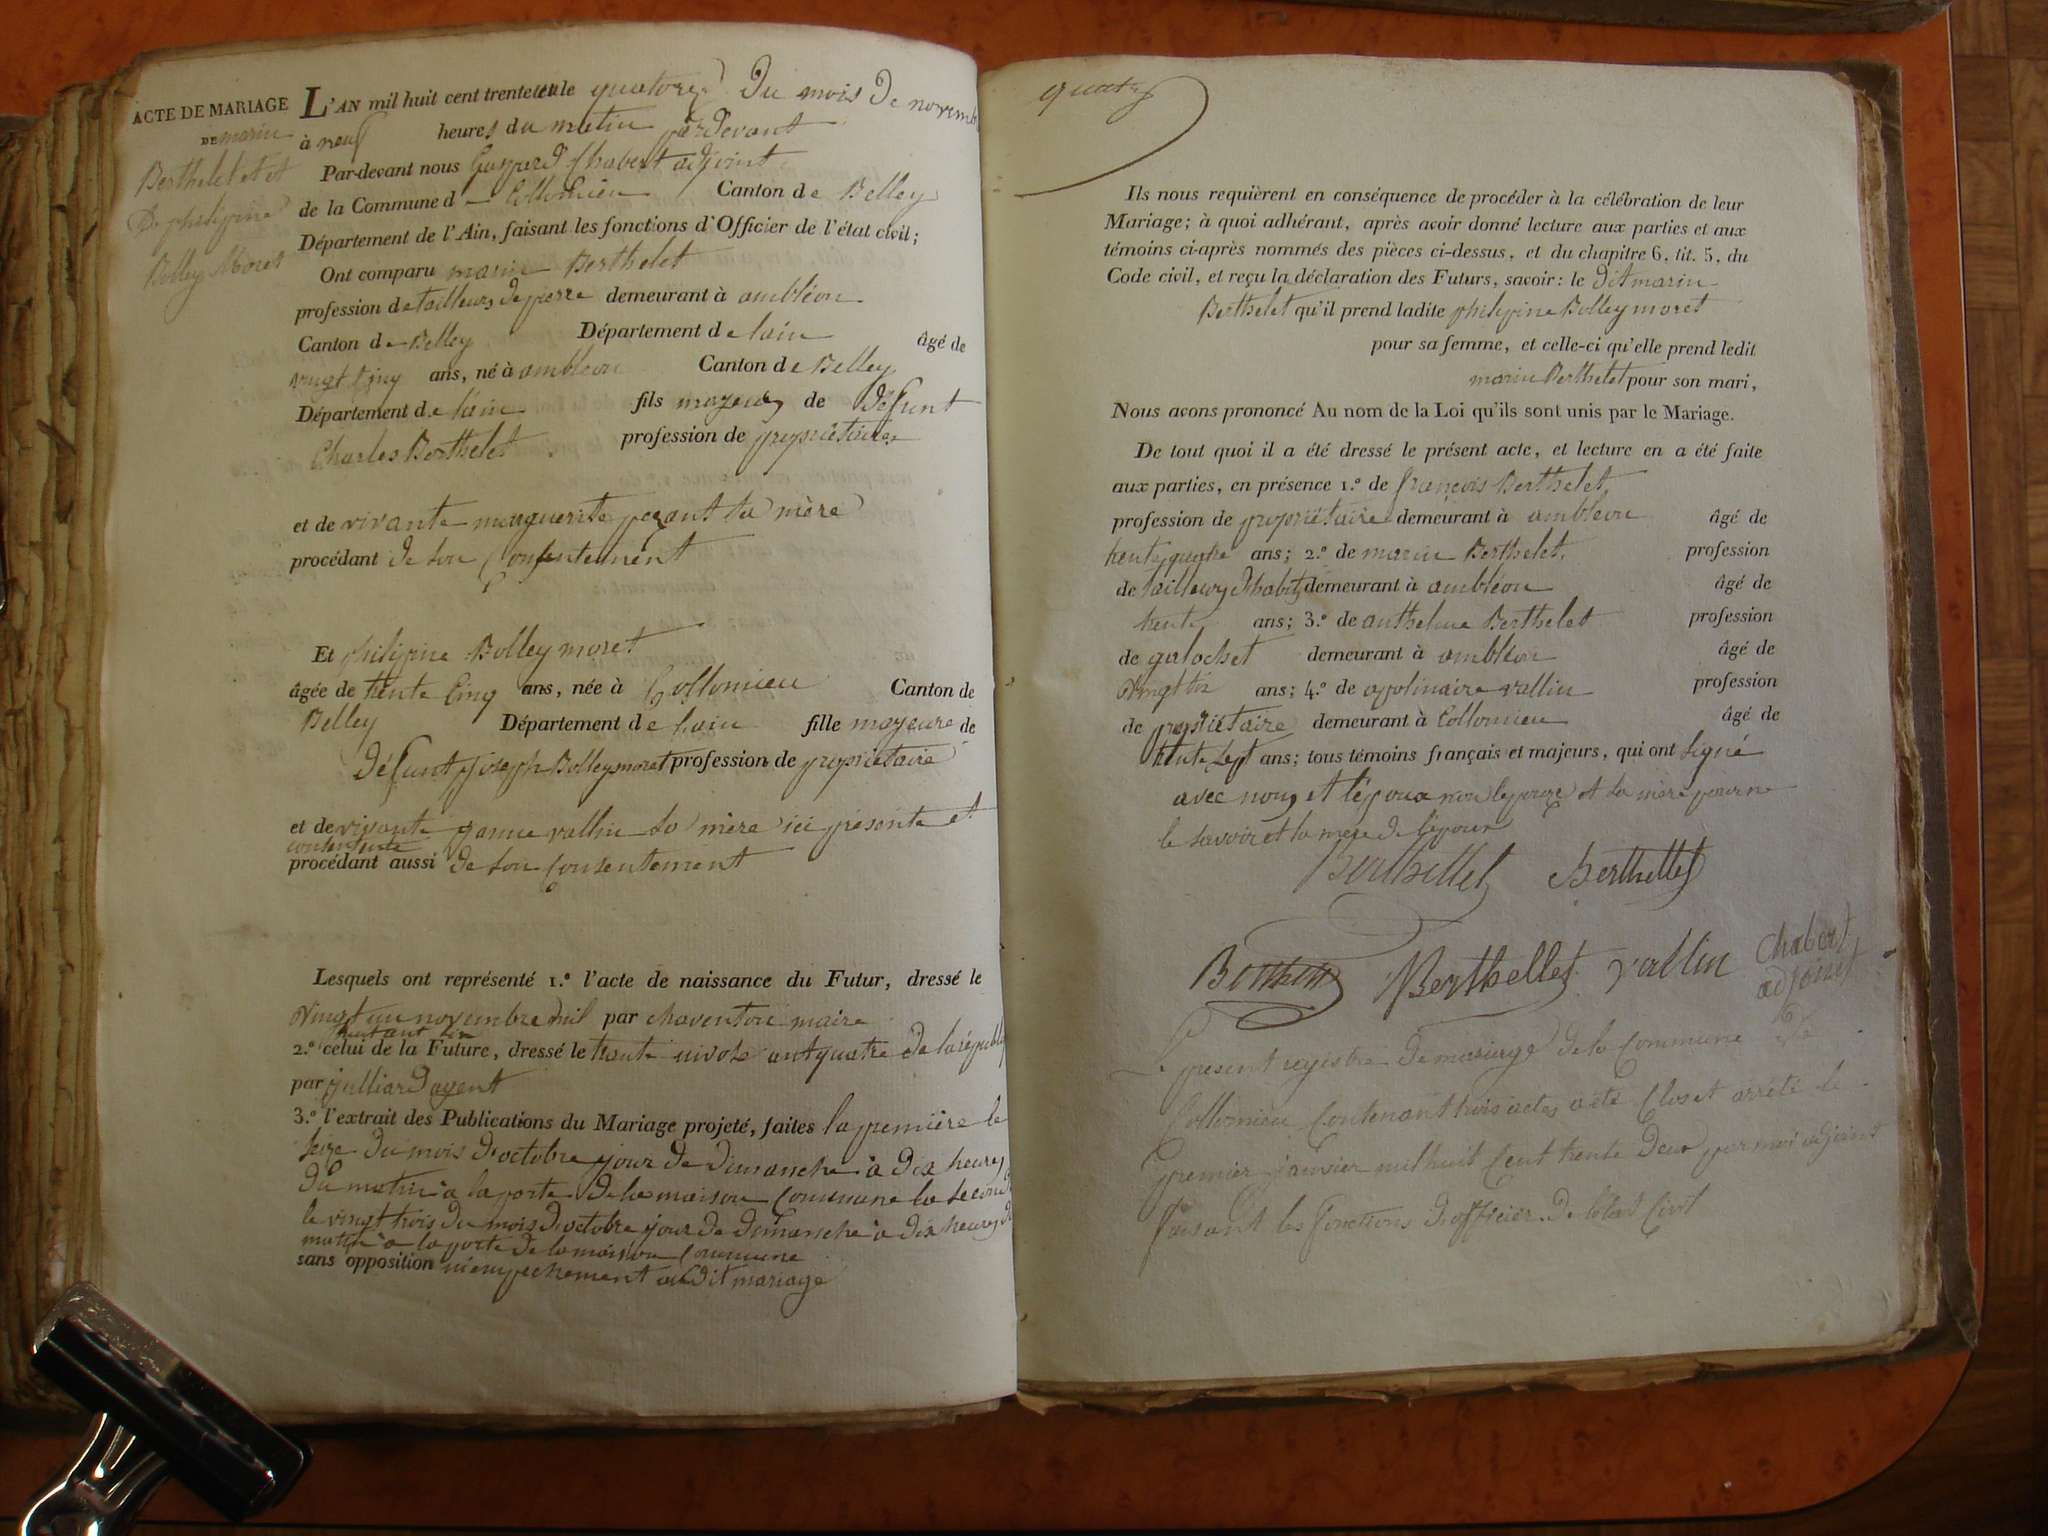 ACTE DE MARIAGE
DE marin
Berthelet et
De philipine
Bolley Moret
L'AN mil huit cent trente le quatorze Du mois De novembre
à neuf heures du matin pardevant
Par-devant nous Gaspard Chabert adjoint
de la Commune d Collomieu Canton de Belley
Département de l'Ain, faisant les fonctions d'Officier de l'état civil;
Ont comparu marin Berthelet
profession de tailleurs de pierre demeurant à ambléon
Canton de Belley Département de lain âgé de
vingt Cinq ans, né à ambléon Canton de Belley
Département de lain fils mayeur de Défunt
Charles Berthelet profession de propriétaires
et de vivante marguerite sa mère
procédant de son Consentement
Et philipine Bolley moret
âgée de trente Cinq ans, née à Collomieu Canton de
Belley Département de lain fille mayeure de
Défunt joseph Bolleymoret profession de propriétaire
et de vivante janne vallin sa mère ici présente et
consentente
procédant aussi de son Consentement
Lesquels ont représenté 1.º l'acte de naissance du Futur, dressé le
vingt un novembre mil par chaventon maire
2.º celui de la Future, dressé le trente nivose ant quatre de la républ
par julliard agent
3.º l'extrait des Publications du Mariage projeté, faites la première le
seize du mois d'octobre jour de dimanche à dix heures
du matin à la porte de la maison Commune la second
le vingt trois du mois d'octobre jour de dimanche à dix heures du
matin à la porte de la maison Commune
sans opposition ni empechement audit mariage
quatre
Ils nous requièrent en conséquence de procéder à la célébration de leur
Mariage; à quoi adhérant, après avoir donné lecture aux parties et aux
témoins ci-après nommés des pièces ci-dessus, et du chapitre 6, tit. 5, du
Code civil, et reçu la déclaration des Futurs, savoir: le dit marin
Berthelet qu'il prend ladite philipine Bolley moret
pour sa femme, et celle-ci qu'elle prend ledit
marin Berthelet pour son mari,
Nous avons prononcé Au nom de la Loi qu'ils sont unis par le Mariage.
De tout quoi il a été dressé le présent acte, et lecture en a été faite
aux parties, en présence 1.º de françois Berthelet
profession de propriétaire demeurant à ambléon âgé de
trente quatre ans; 2.º de marin Berthelet profession
de tailleurs d'habits demeurant à ambléon âgé de
trente ans; 3.º de anthelme Berthelet profession
de galochet demeurant à ambléon âgé de
vingt six ans; 4.º de apolinaire vallin profession
de propriétaire demeurant à Collomieu âgé de
trente sept ans; tous témoins français et majeurs, qui ont signé
avec nous et l'époux non lepouze et sa mère pour ne
le savoir et la mere de l'epoux
Berthellet Berthellet
Berthellet vallin Chabert
adjoint
Le present registre de mariage de la Commune de
Collomieu Contenant trois actes a été Clos et arrété le
premier janvier mil huit Cent trente Deux par moi adjoint
faisant les fonctions d'officier de letat Civil